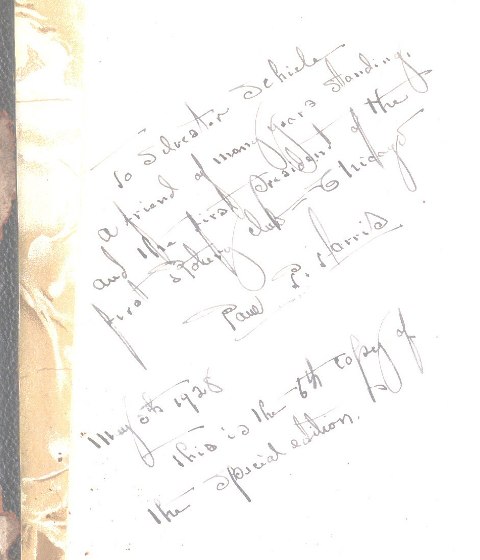 To Silvester Schiele
A friend of many years standing,
and the first President of the
first Rotary club - Chicago
Paul P. Harris
May 5th 1928
This is the 6th copy of
the special edition.